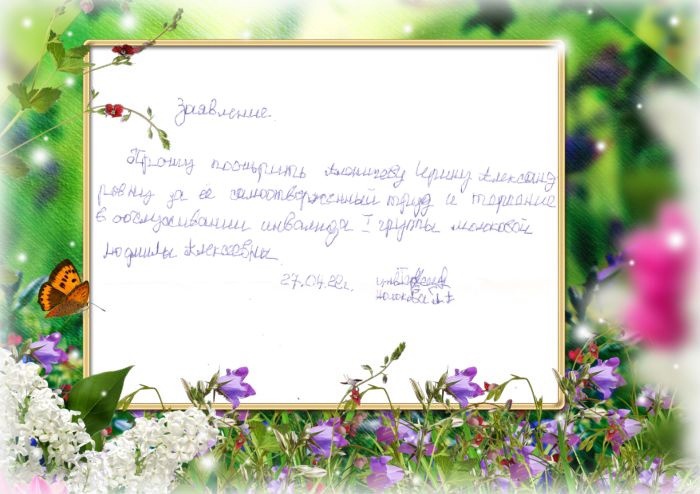 Заявление.
Прошу поощрить Ирину Александ
ровну за ее самоотверженный труд и терпение
в обслуживании инвалида I группы Молоковой
Людмилы Алексеевны
27.04.22г.
Молокова Л.А